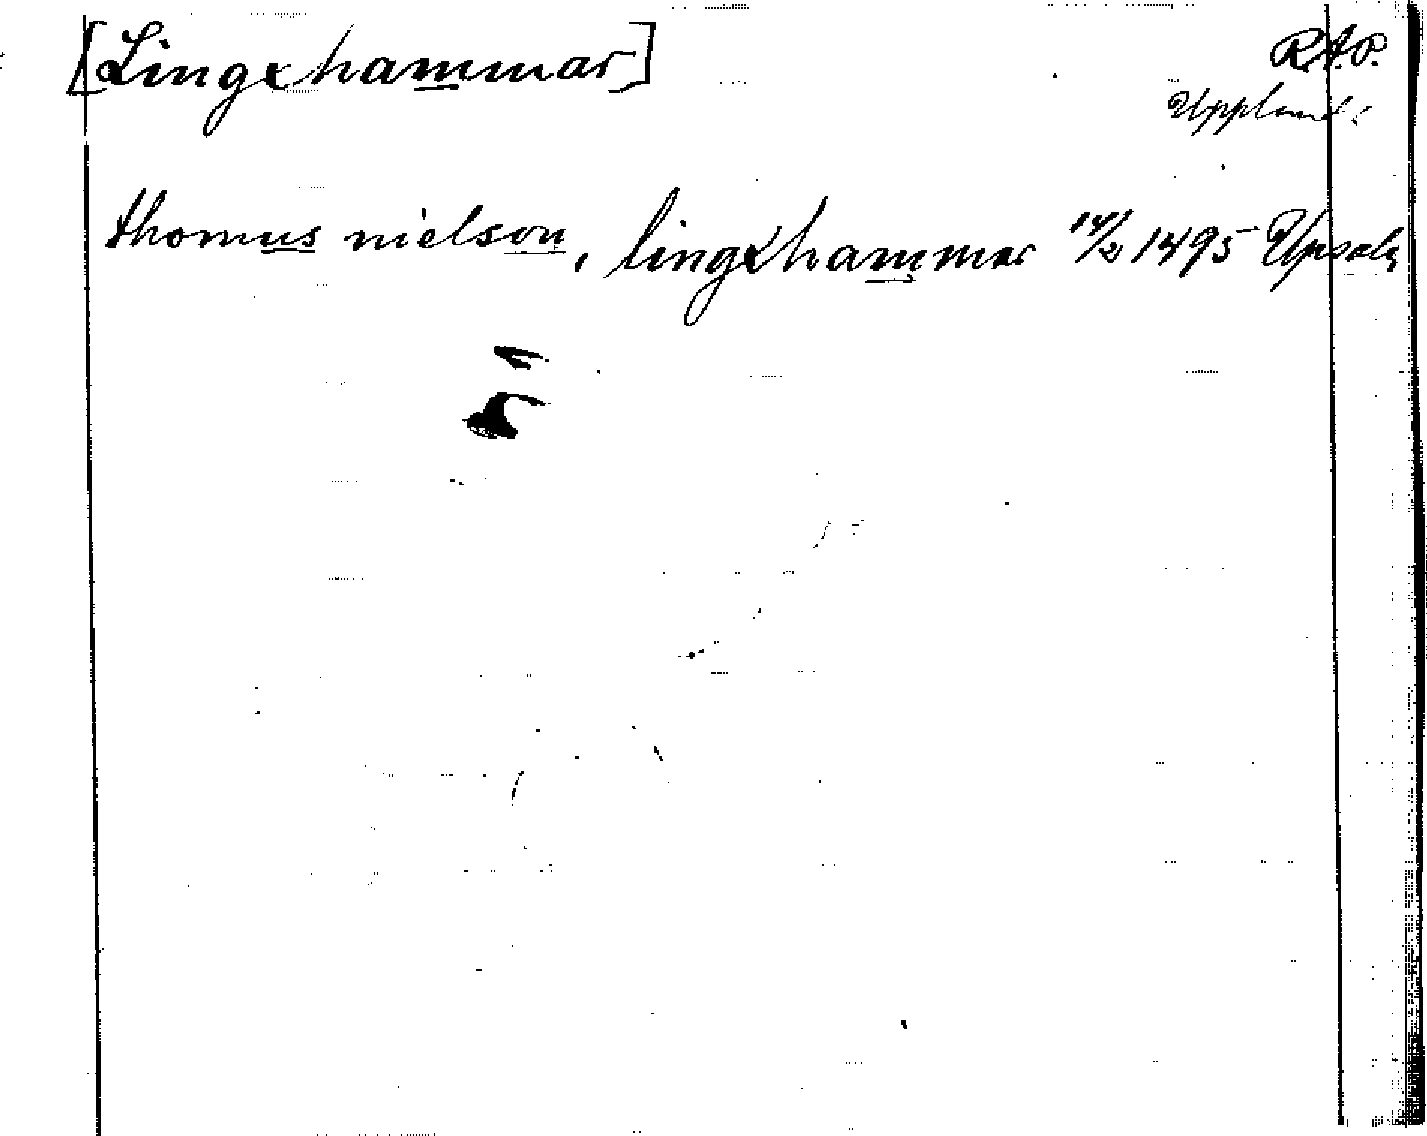 [Lingxhammar] R.A.P.
Uppland.
thomus nielson, lingxhammar 14/2 1495 Upsala